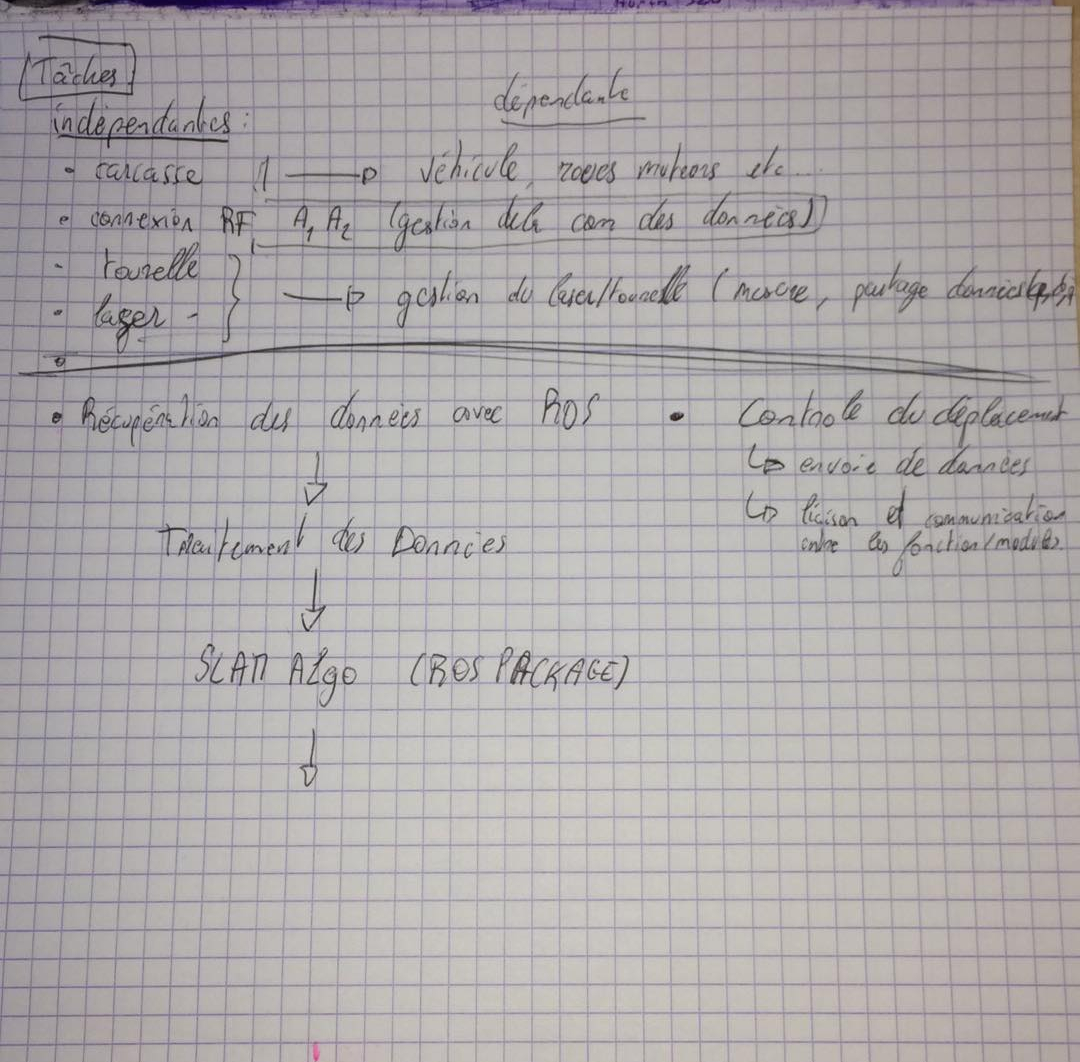 Tâches
indépendantes :
dépendante
• carcasse → véhicule, roues moteurs etc...
• connexion RF A1 A2 (gestion de la com des données)
- tourelle
• laser - } → gestion du laser/tourelle (mesure, partage données
• Récupération des données avec ROS
↓
Traitement des Données
↓
SLAM Algo (ROS PACKAGE)
↓
• Controle du déplacement
↳ envoie de données
↳ liaison et communication
entre les fonction/modules